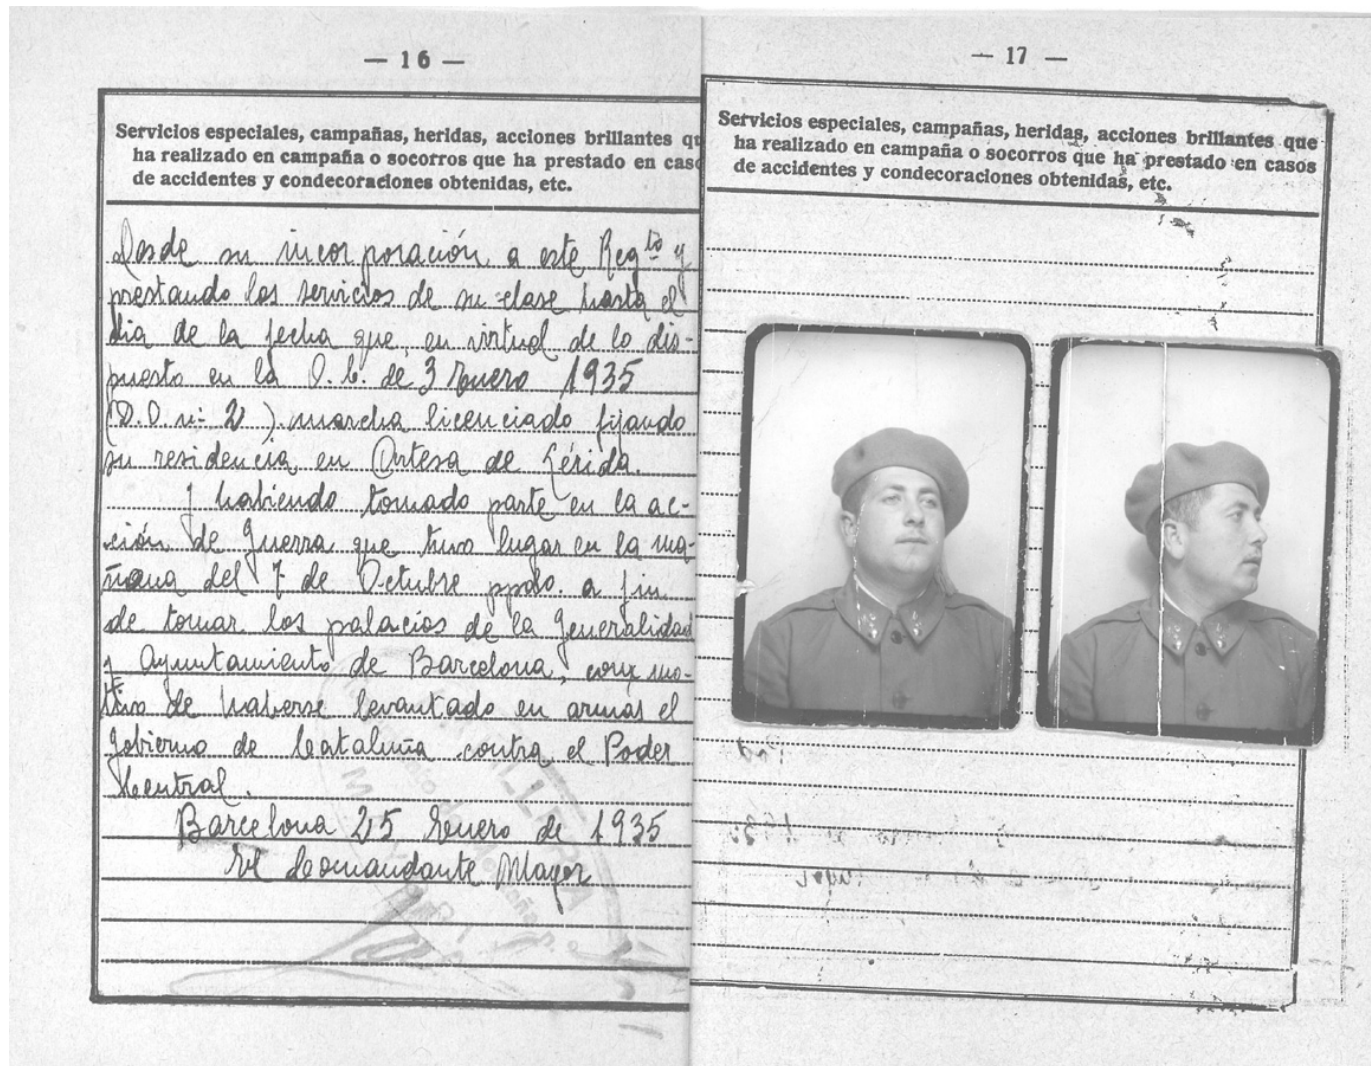 — 16 —
Servicios especiales, campañas, heridas, acciones brillantes qu
ha realizado en campaña o socorros que ha prestado en caso
de accidentes y condecoraciones obtenidas, etc.
Desde su incorporación a este Regto y
prestando los servicios de su clase hasta el
dia de la fecha que, en virtud de lo dis-
puesto en la O. C. de 3 Enero 1935
(D.O. nº 2) marcha licenciado fijando
su residencia en Artesa de Lérida.
Y habiendo tomado parte en la ac-
ción de Guerra que tuvo lugar en la ma-
ñana del 7 de Octubre ppdo. a fin
de tomar los palacios de la Generalidad
y Ayuntamiento de Barcelona, con mo-
tivo de haberse levantado en armas el
Gobierno de Cataluña contra el Poder
Central.
Barcelona 25 Enero de 1935
El Comandante Mayor
— 17 —
Servicios especiales, campañas, heridas, acciones brillantes que
ha realizado en campaña o socorros que ha prestado en casos
de accidentes y condecoraciones obtenidas, etc.